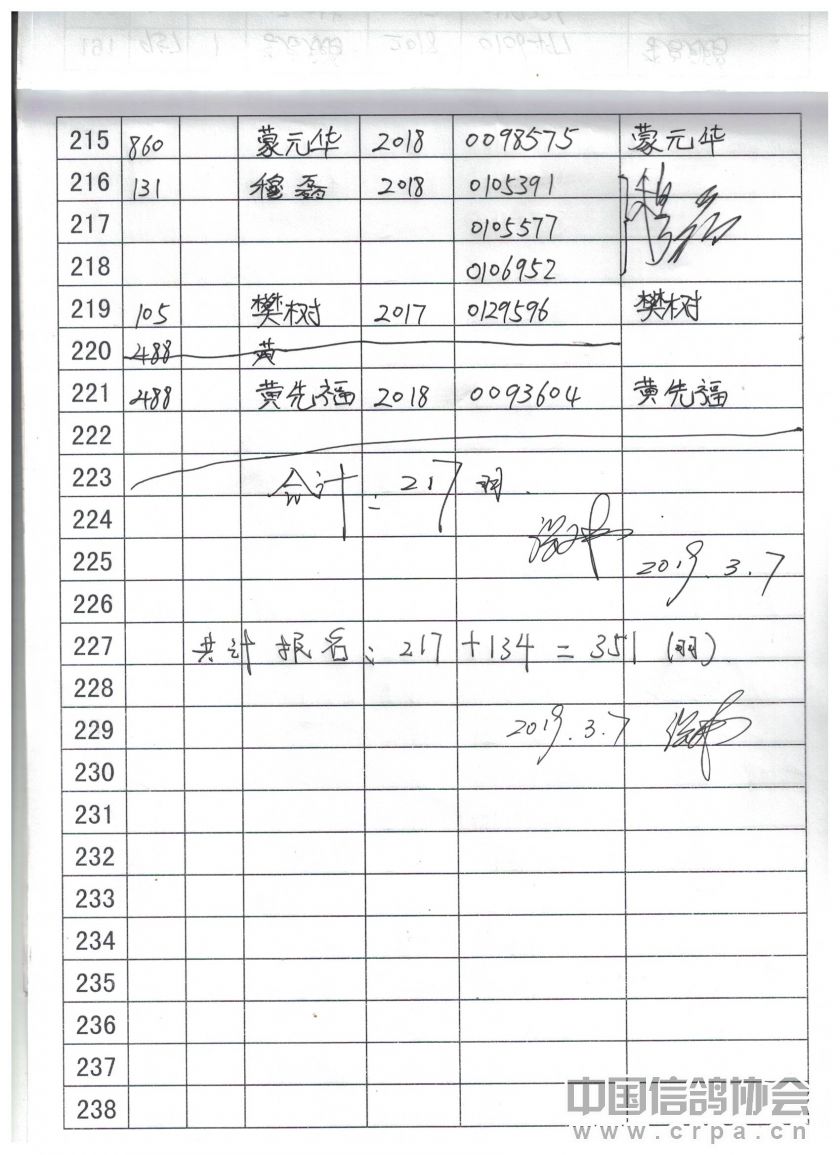 215 860 蒙元华 2018 0098575 蒙元华
216 131 穆磊 2018 0105391
217 0105577
218 0106952
219 105 樊树 2017 0129596 樊树
220 488 黄
221 488 黄先福 2018 0093604 黄先福
222
223 合计: 217 羽.
224
225 2019.3.7
226
227 共计报名: 217 + 134 = 351 (羽)
228
229 2019.3.7
230
231
232
233
234
235
236
237
238
中国信鸽协会
www.crpa.cn